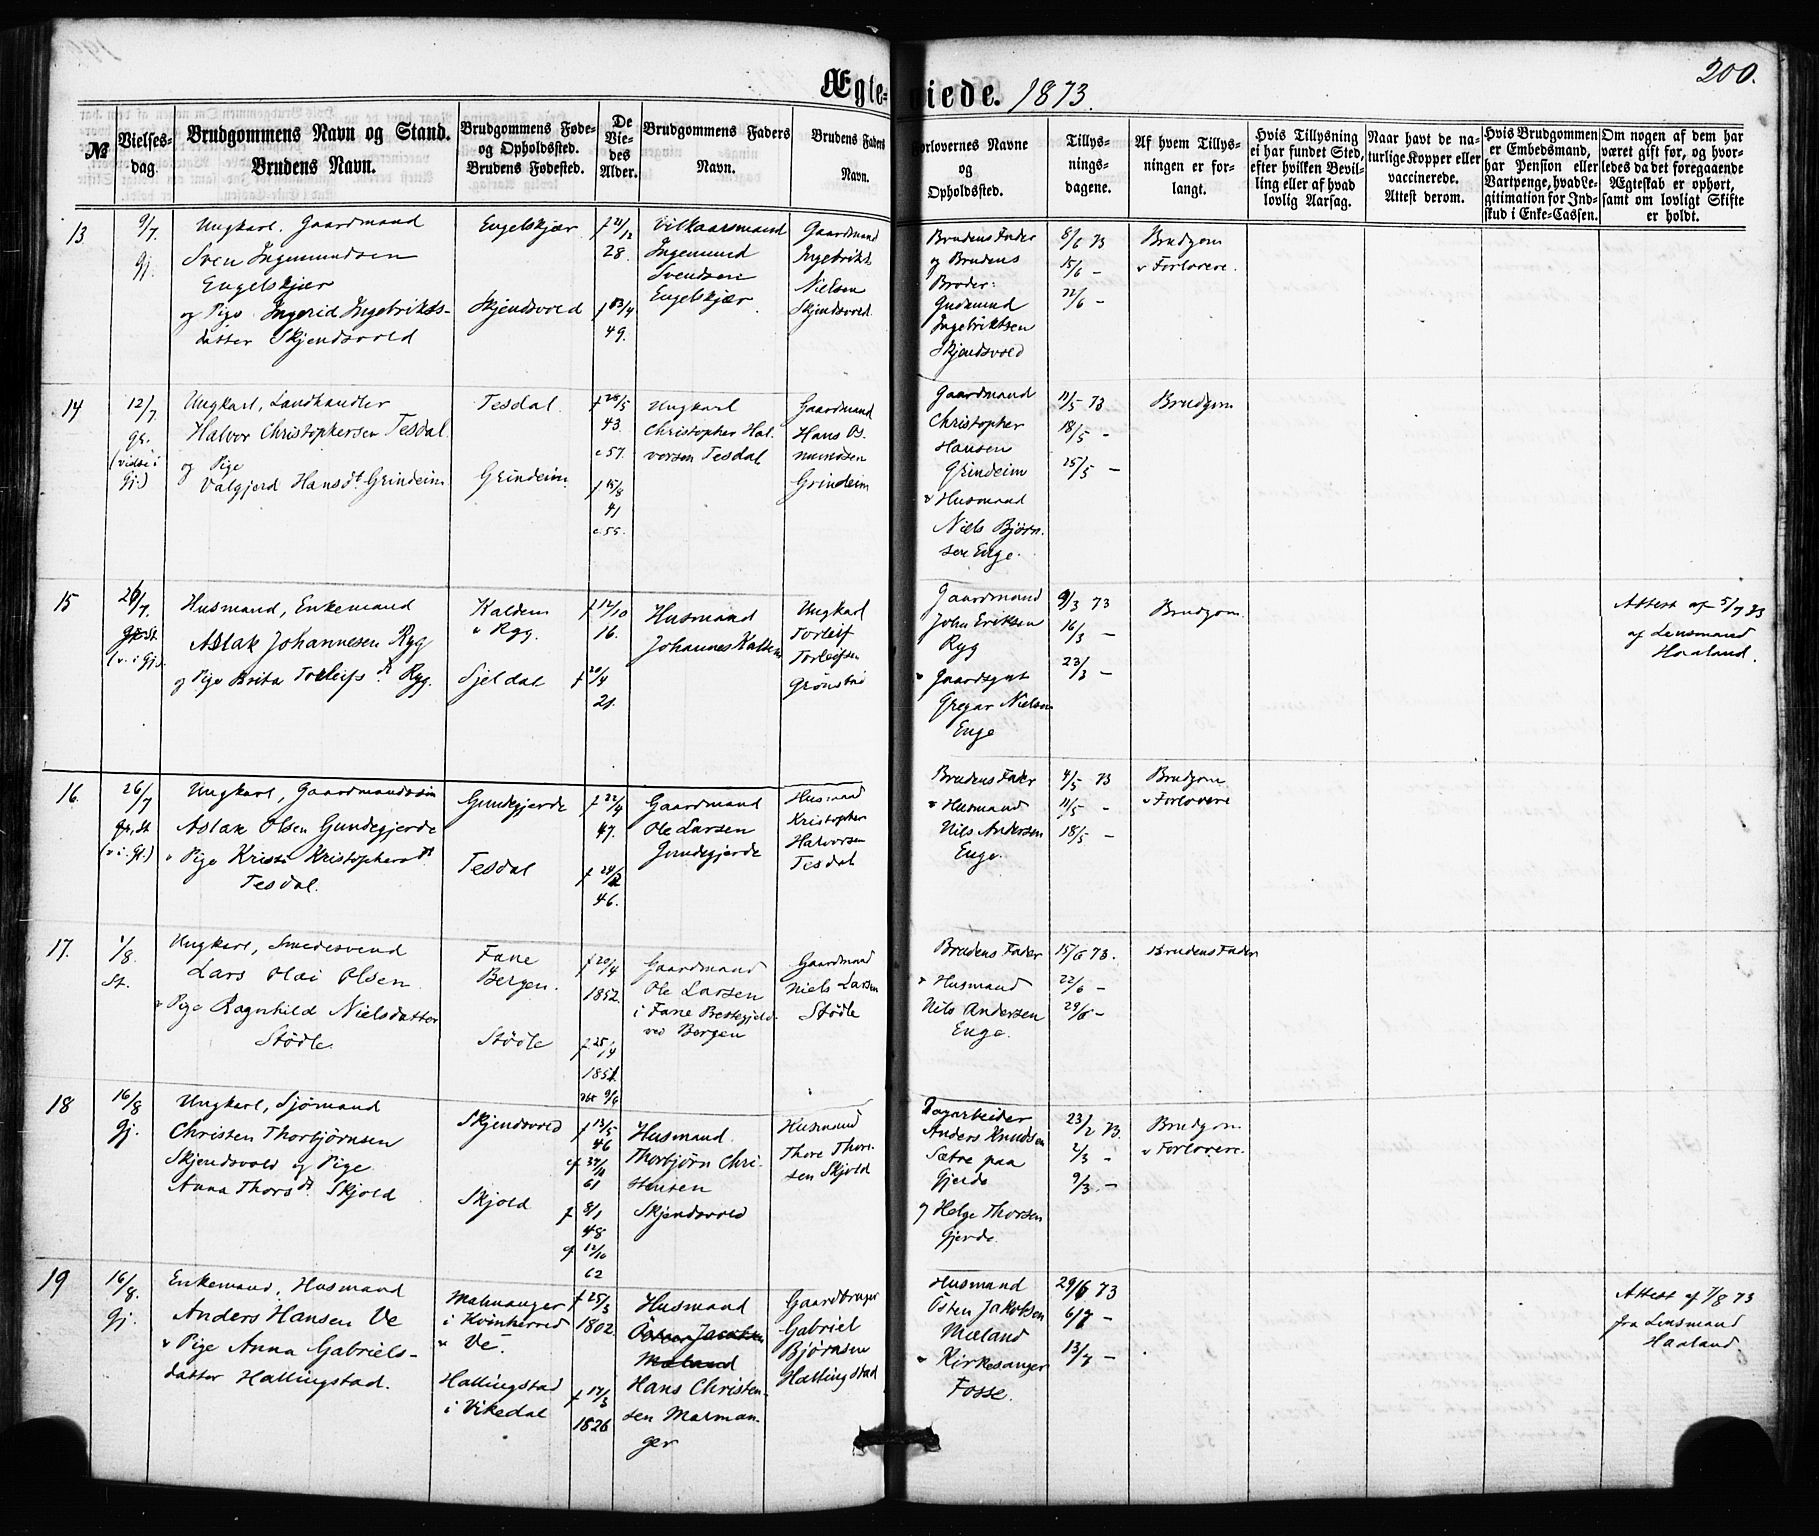 200.
Ægte-viede. 1873.
№
Vielses-
dag.
Brudgommens Navn og Stand.
Brudens Navn.
Brudgommens Føde-
og Opholdssted.
Brudens Fødested.
De
Vie-
des
Alder.
Brudgommens Faders
Navn.
Brudens Faders
Navn.
Forlovernes Navne
og
Opholdssted.
Tillys-
nings-
dagene.
Af hvem Tillys-
ningen er for-
langt.
Hvis Tillysning
ei har fundet Sted,
efter hvilken Bevil-
ling eller af hvad
lovlig Aarsag.
Naar havt de na-
turlige Kopper eller
vaccinerede.
Attest derom.
Hvis Brudgommen
er Embedsmand,
har Pension eller
Vartpenge, hvad Le-
gitimation for Ind-
skud i Enke-Cassen.
Om nogen af dem har
været gift før, og hvor-
ledes da det foregaaende
Ægteskab er ophørt,
samt om lovligt Skifte
er holdt.
13
9/7
Gj.
Ungkarl. Gaardmand
Sven Ingemundsen
Engelskjær
og Pige Ingerid Ingebrikts-
datter Skjendsvold
Engelskjær
Skjendsvold
f 21/12
28.
f 03/4
49.
Vilkaarsmand
Ingemund
Svendsen
Engelskjær
Gaardmand
Ingebrikt
Nielsen
Skjendsvold
Brudens Fader
og Brudens
Broder:
Gudmund
Ingebriktsen
Skjendsvold
8/6 73
15/6 -
22/6 -
Brudgom
v Forlovere.
14
12/7
Gr.
(vidse i
Gj.)
Ungkarl, Landhandler
Halvor Christophersen Tesdal.
og Pige
Valgjerd Hansdt Grindeim
Tesdal.
Grindeim.
f 28/5
43.
c 57.
f 15/8
41
c. 55.
Ungkarl
Christopher Hal-
vorsen Tesdal
Gaardmand
Hans As-
mundsen
Grindeim
Gaardmand
Christopher
Hansen
Grindeim
v Husmand
Niels Bjørn-
sen Enge.
11/5 73
18/5 -
25/5 -
Brudgom
15
26/7.
St.
(v. i Gj.)
Husmand, Enkemand
Aslak Johannesen Ryg
og Pige Brita Torleifsdt Ryg.
Kaldem
v Ryg.
Sjeldal
f 12/10
16.
f 20/4
21.
Husmand
Johannes Kaldem
Ungkarl
Torleif
Torleifsen
Grønstad
Gaardmand
John Eriksen
Ryg
v Gaardsgut
Gregar Nielsen
Enge
9/3 73
16/3 -
23/3 -
Brudgom.
Attest af 5/7 73
af Lensmand
Haaland.
16.
26/7
Gr. St
(v. i. Gj.)
Ungkarl, Gaardmandssøn
Aslak Olsen Gundegjerde
v Pige Kristi Kristophersdt
Tesdal.
Gundegjerde
Tesdal
f 22/4
47.
f 24/12
46.
Gaardmand
Ole Larsen
Gundegjerde
Husmand
Kristopher
Halvorsen
Tesdal
Brudens Fader
v Husmand
Nils Andersen
Enge.
4/5 73
11/5 -
18/5 -
Brudgom
v Forlovere
17.
1/8.
St.
Ungkarl, Smedesvend
Lars Olai Olsen
v Pige Ragnhild Nielsdatter
Stødle.
Fane
Bergen.
Stødle
f 20/4
1852.
f. 25/4
1851.
Gaardmand
Ole Larsen
i Fane Prestegjeld
ved Bergen
Gaardmand
Niels Larsen
Stødle
Brudens Fader
v Husmand
Nils Andersen
Enge.
15/6 73.
22/6 -
29/6 -
Brudens Fader
18
16/8
Gj.
Ungkarl, Sjømand
Christen Thorbjørnsen
Skjendsvold og Pige
Anna Thorsdt Skjold
Skjendsvold
Skjold
f 13/5
46
61
f 8/1
48
cf 12/10
62
Husmand.
Thorbjørn Chri-
stensen
Skjendsvold
Husmand
Thore Thore-
sen Skjold
Dagarbeider
Anders Knudsen
Sætre paa
Gjerde
og Helge Thorsen
Gjerde.
23/2 73.
2/3 -
9/3. -
Brudgom
v Forlovere.
19
16/8.
Gj.
Enkemand, Husmand
Anders Hansen Ve
v Pige Anna Gabriels-
datter Hallingstad.
Malmanger
i Kvinherred
v Ve.
Hallingstad
i Vikedal
f 25/3
1802.
f 17/3
1826
Husmand
Østen Jacobsen
Mæland
Hans Christen-
sen Malman-
ger
Gaardbruger
Gabriel
Bjørnsen
Hallingstad
Husmand
Østen Jakobsen
Mæland
v Kirkesanger
Fosse.
29/6 73
6/7 -
13/7 -
Attest af 7/8 73
fra Lensmand
Haaland.